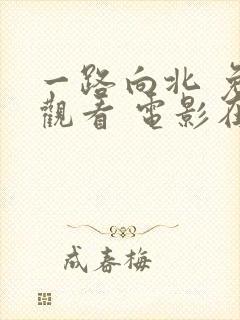 一路向北
觀看 電影在
成春梅